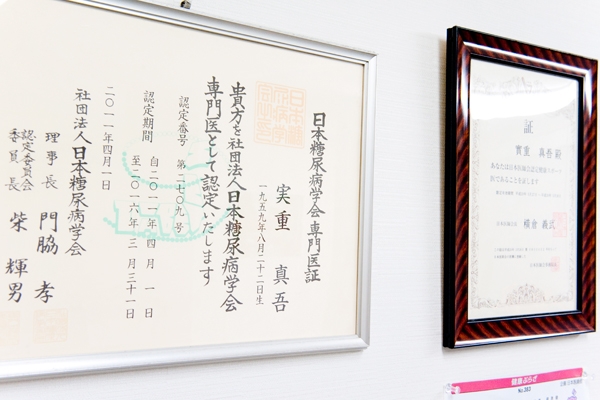 日本糖尿病学会 専門医証
実重 真吾
一九五九年八月二十二日生
貴方を社団法人日本糖尿病学会
専門医として認定いたします
認定番号 第二七〇九号
認定期間 自二〇一一年 四月 一日
至二〇一六年 三月三十一日
二〇一一年四月一日
社団法人日本糖尿病学会
理事長 門脇 孝
認定委員会
委員長 柴 輝男
証
實重 真吾 殿
横倉 義武
健康ぷらざ
No.383